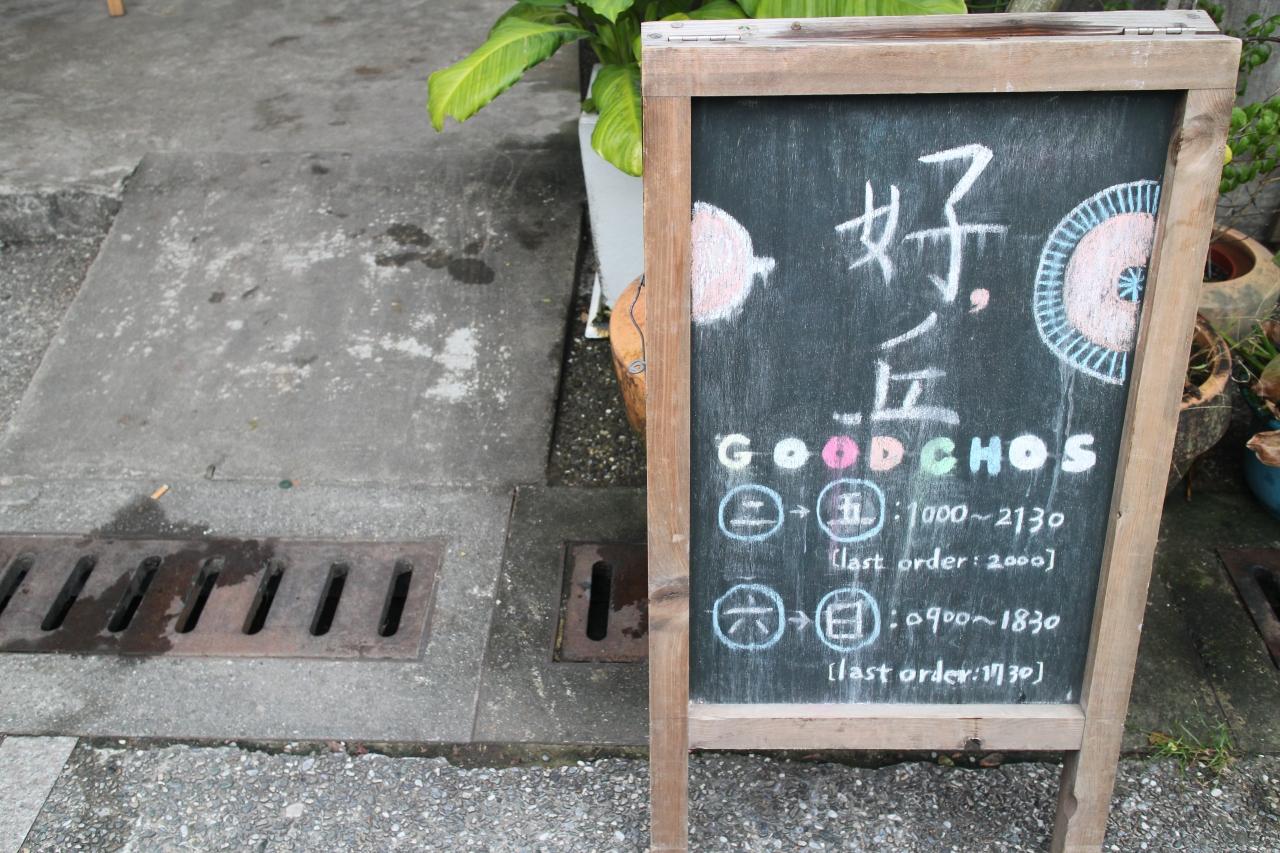 好,
丘
GOODCHOS
二→五:1000~2130
[last order:2000]
六→日:0900~1830
[last order:1730]